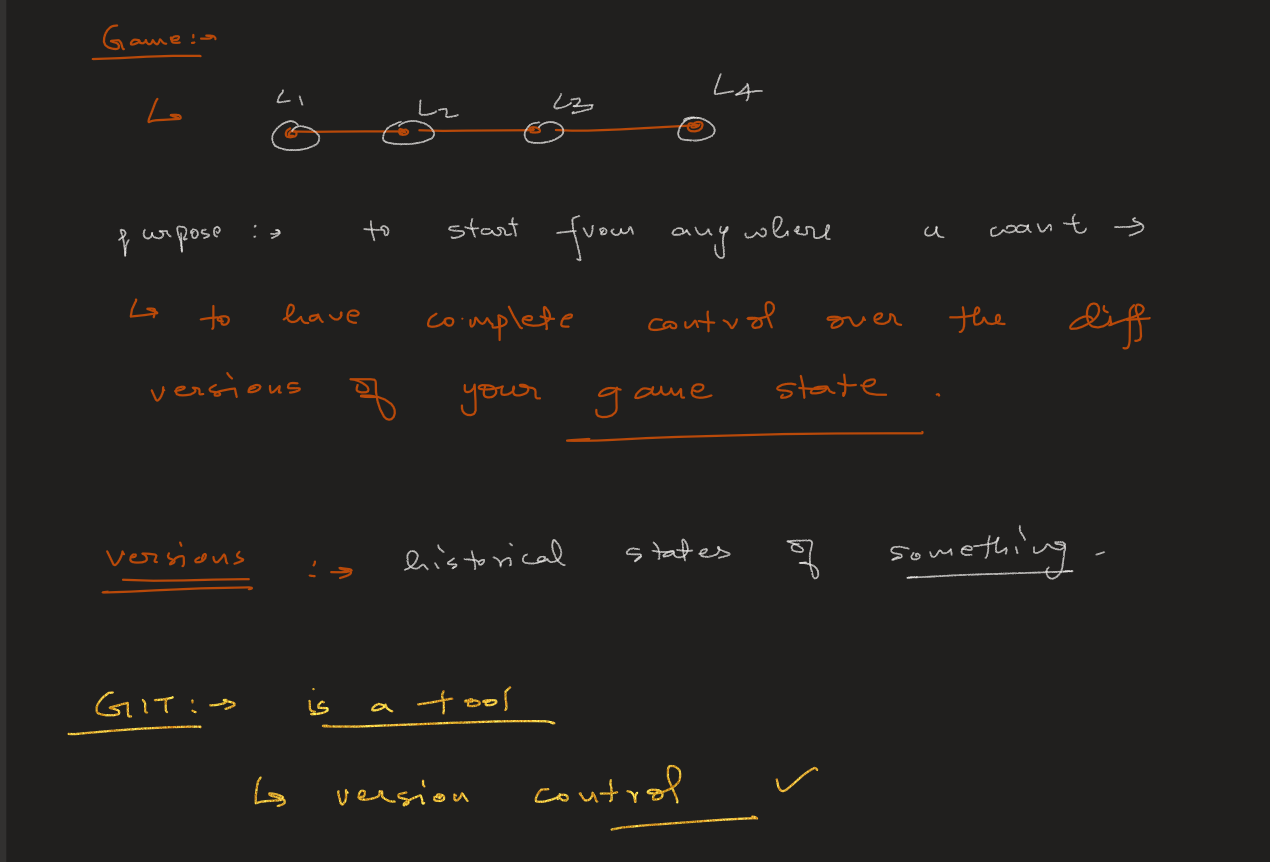 Game :→
↳ L1 L2 L3 L4
purpose :→ to start from anywhere u want →
↳ to have complete control over the diff
versions of your game state .
versions :→ historical states of something -
GIT :→ is a tool
↳ version control ✓